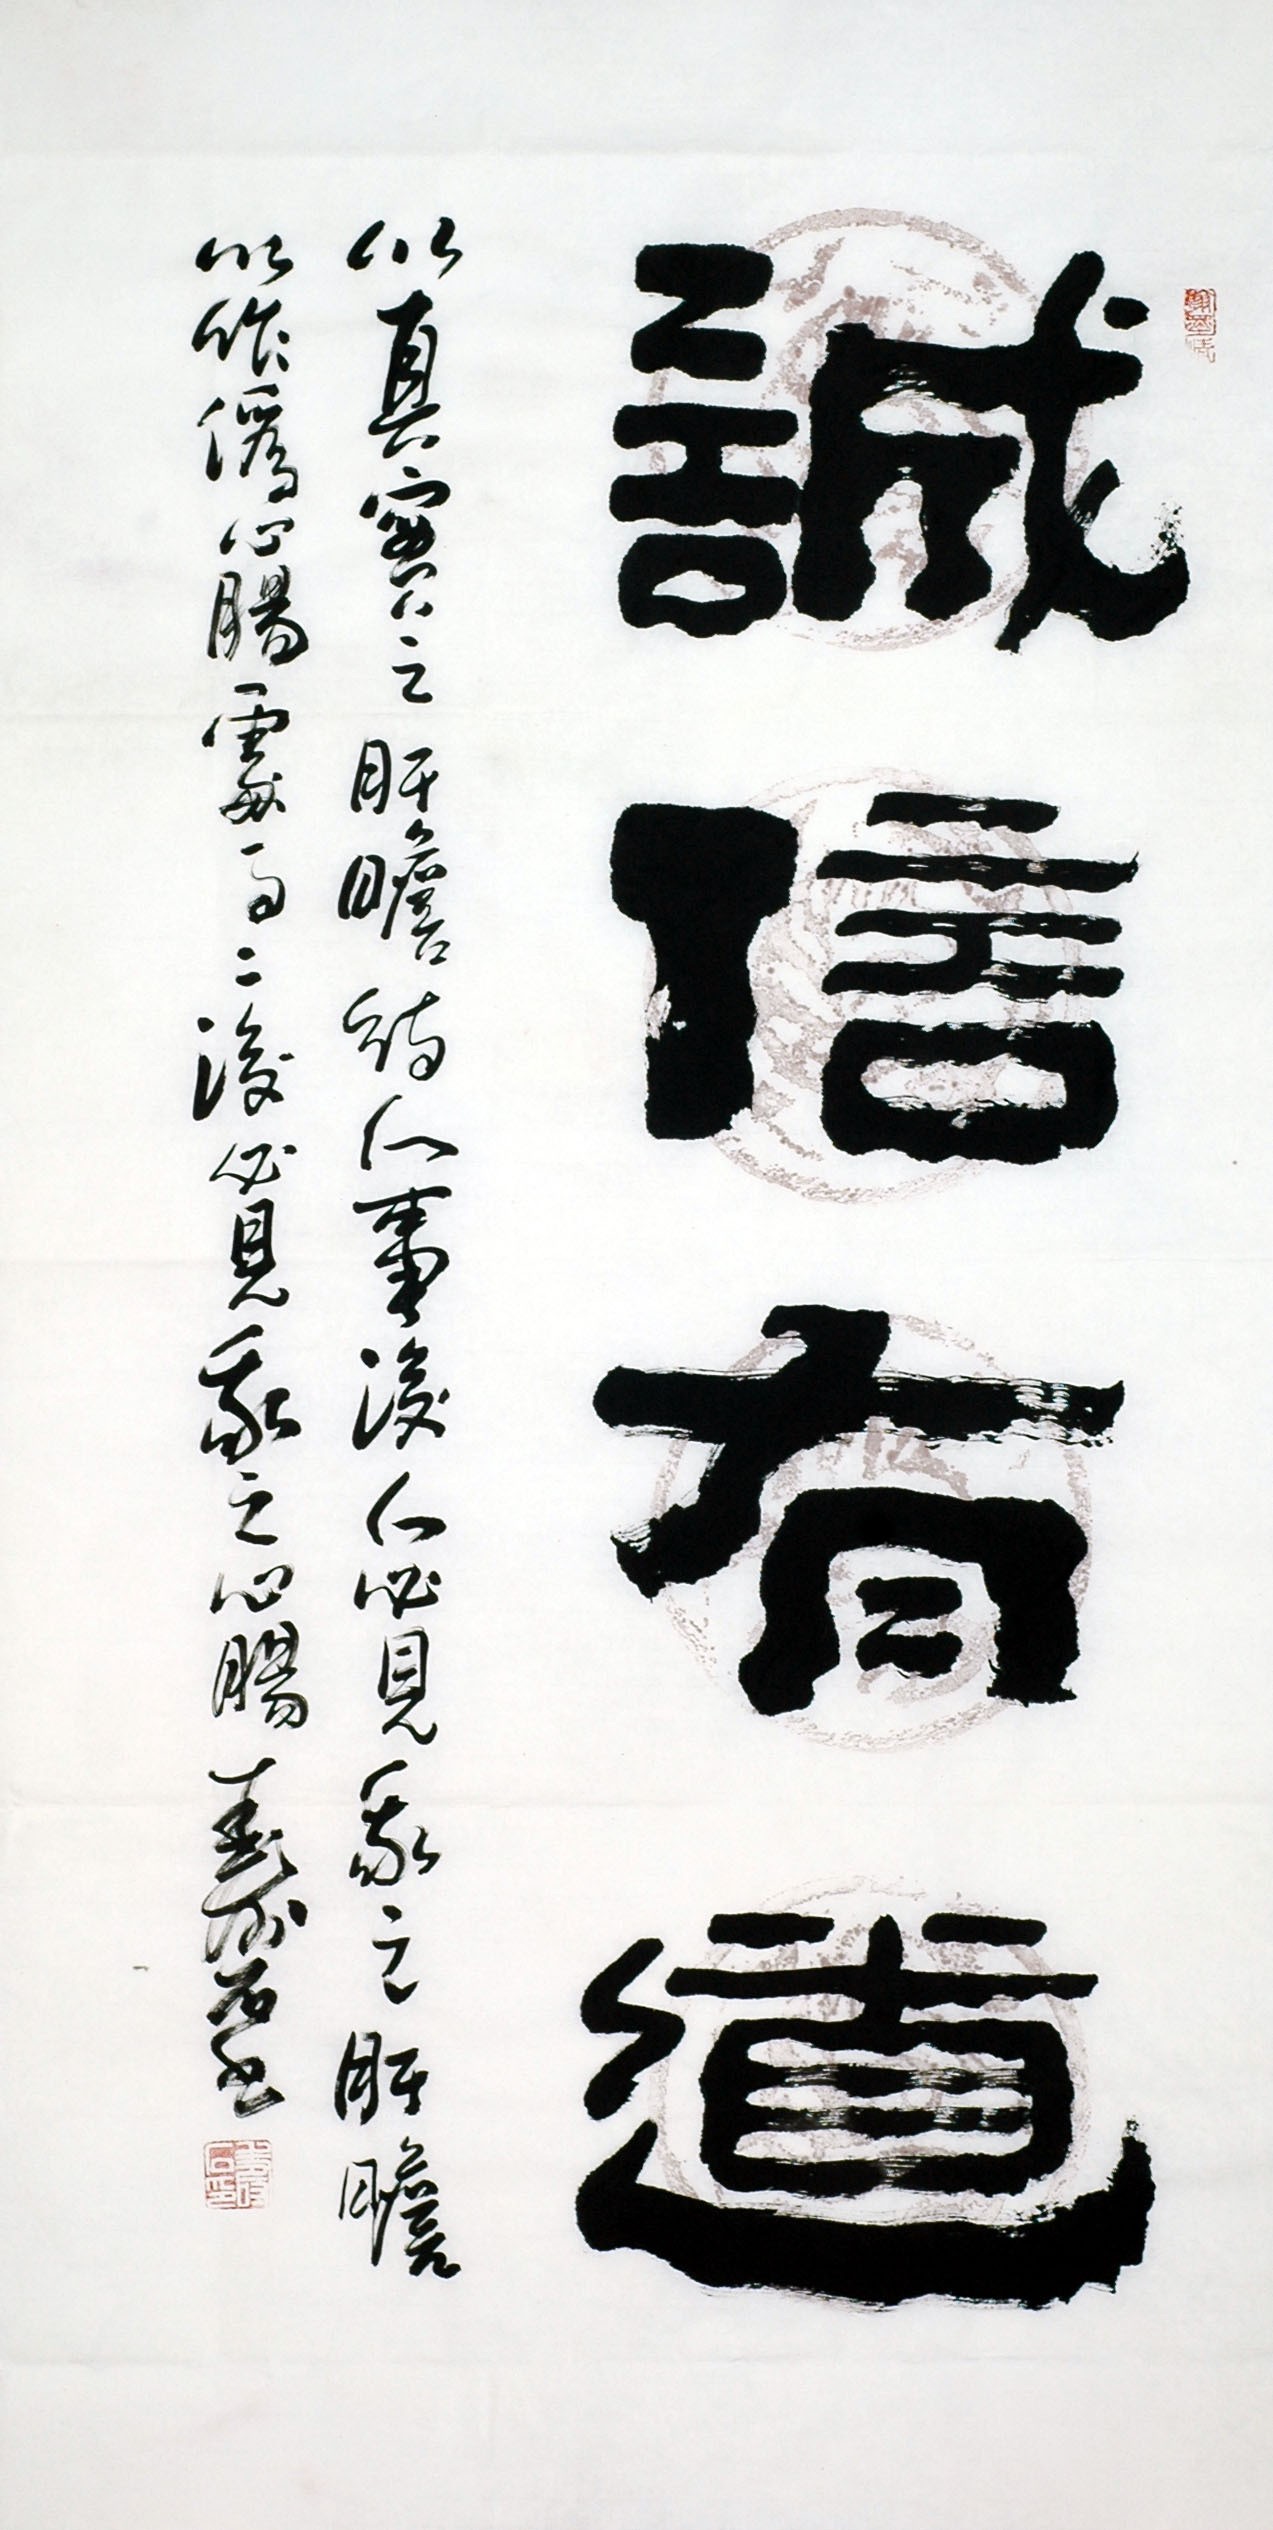 誠信有道
以真實之肝膽待人事後人必見我之肝膽
以作僞心腸處事々後必見我之心腸